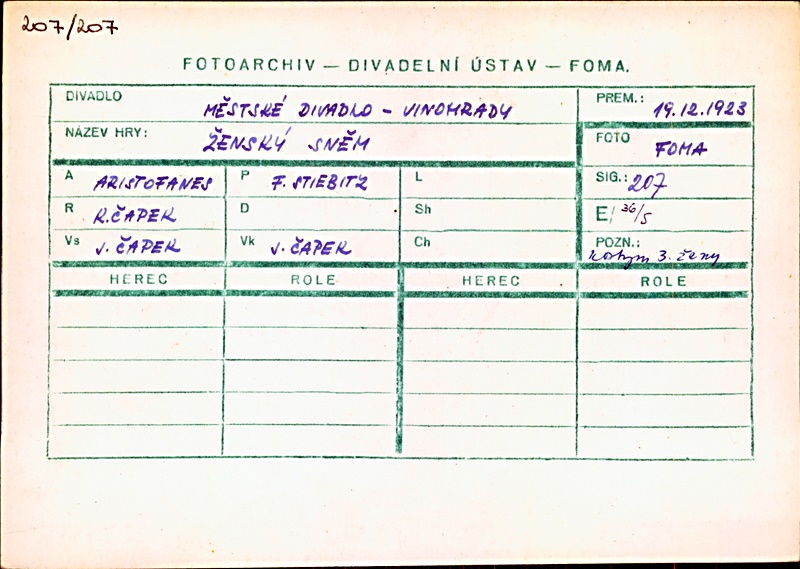 207/207
FOTOARCHIV — DIVADELNÍ ÚSTAV — FOMA.
DIVADLO MĚSTSKÉ DIVADLO – VINOHRADY PREM.: 19.12.1923
NÁZEV HRY: ŽENSKÝ SNĚM FOTO FOMA
A ARISTOFANES P F. STIEBITZ L SIG.: 207
R K. ČAPEK D Sh E/ 36/5
Vs J. ČAPEK Vk J. ČAPEK Ch POZN.: kostym 3. ženy
HEREC ROLE HEREC ROLE